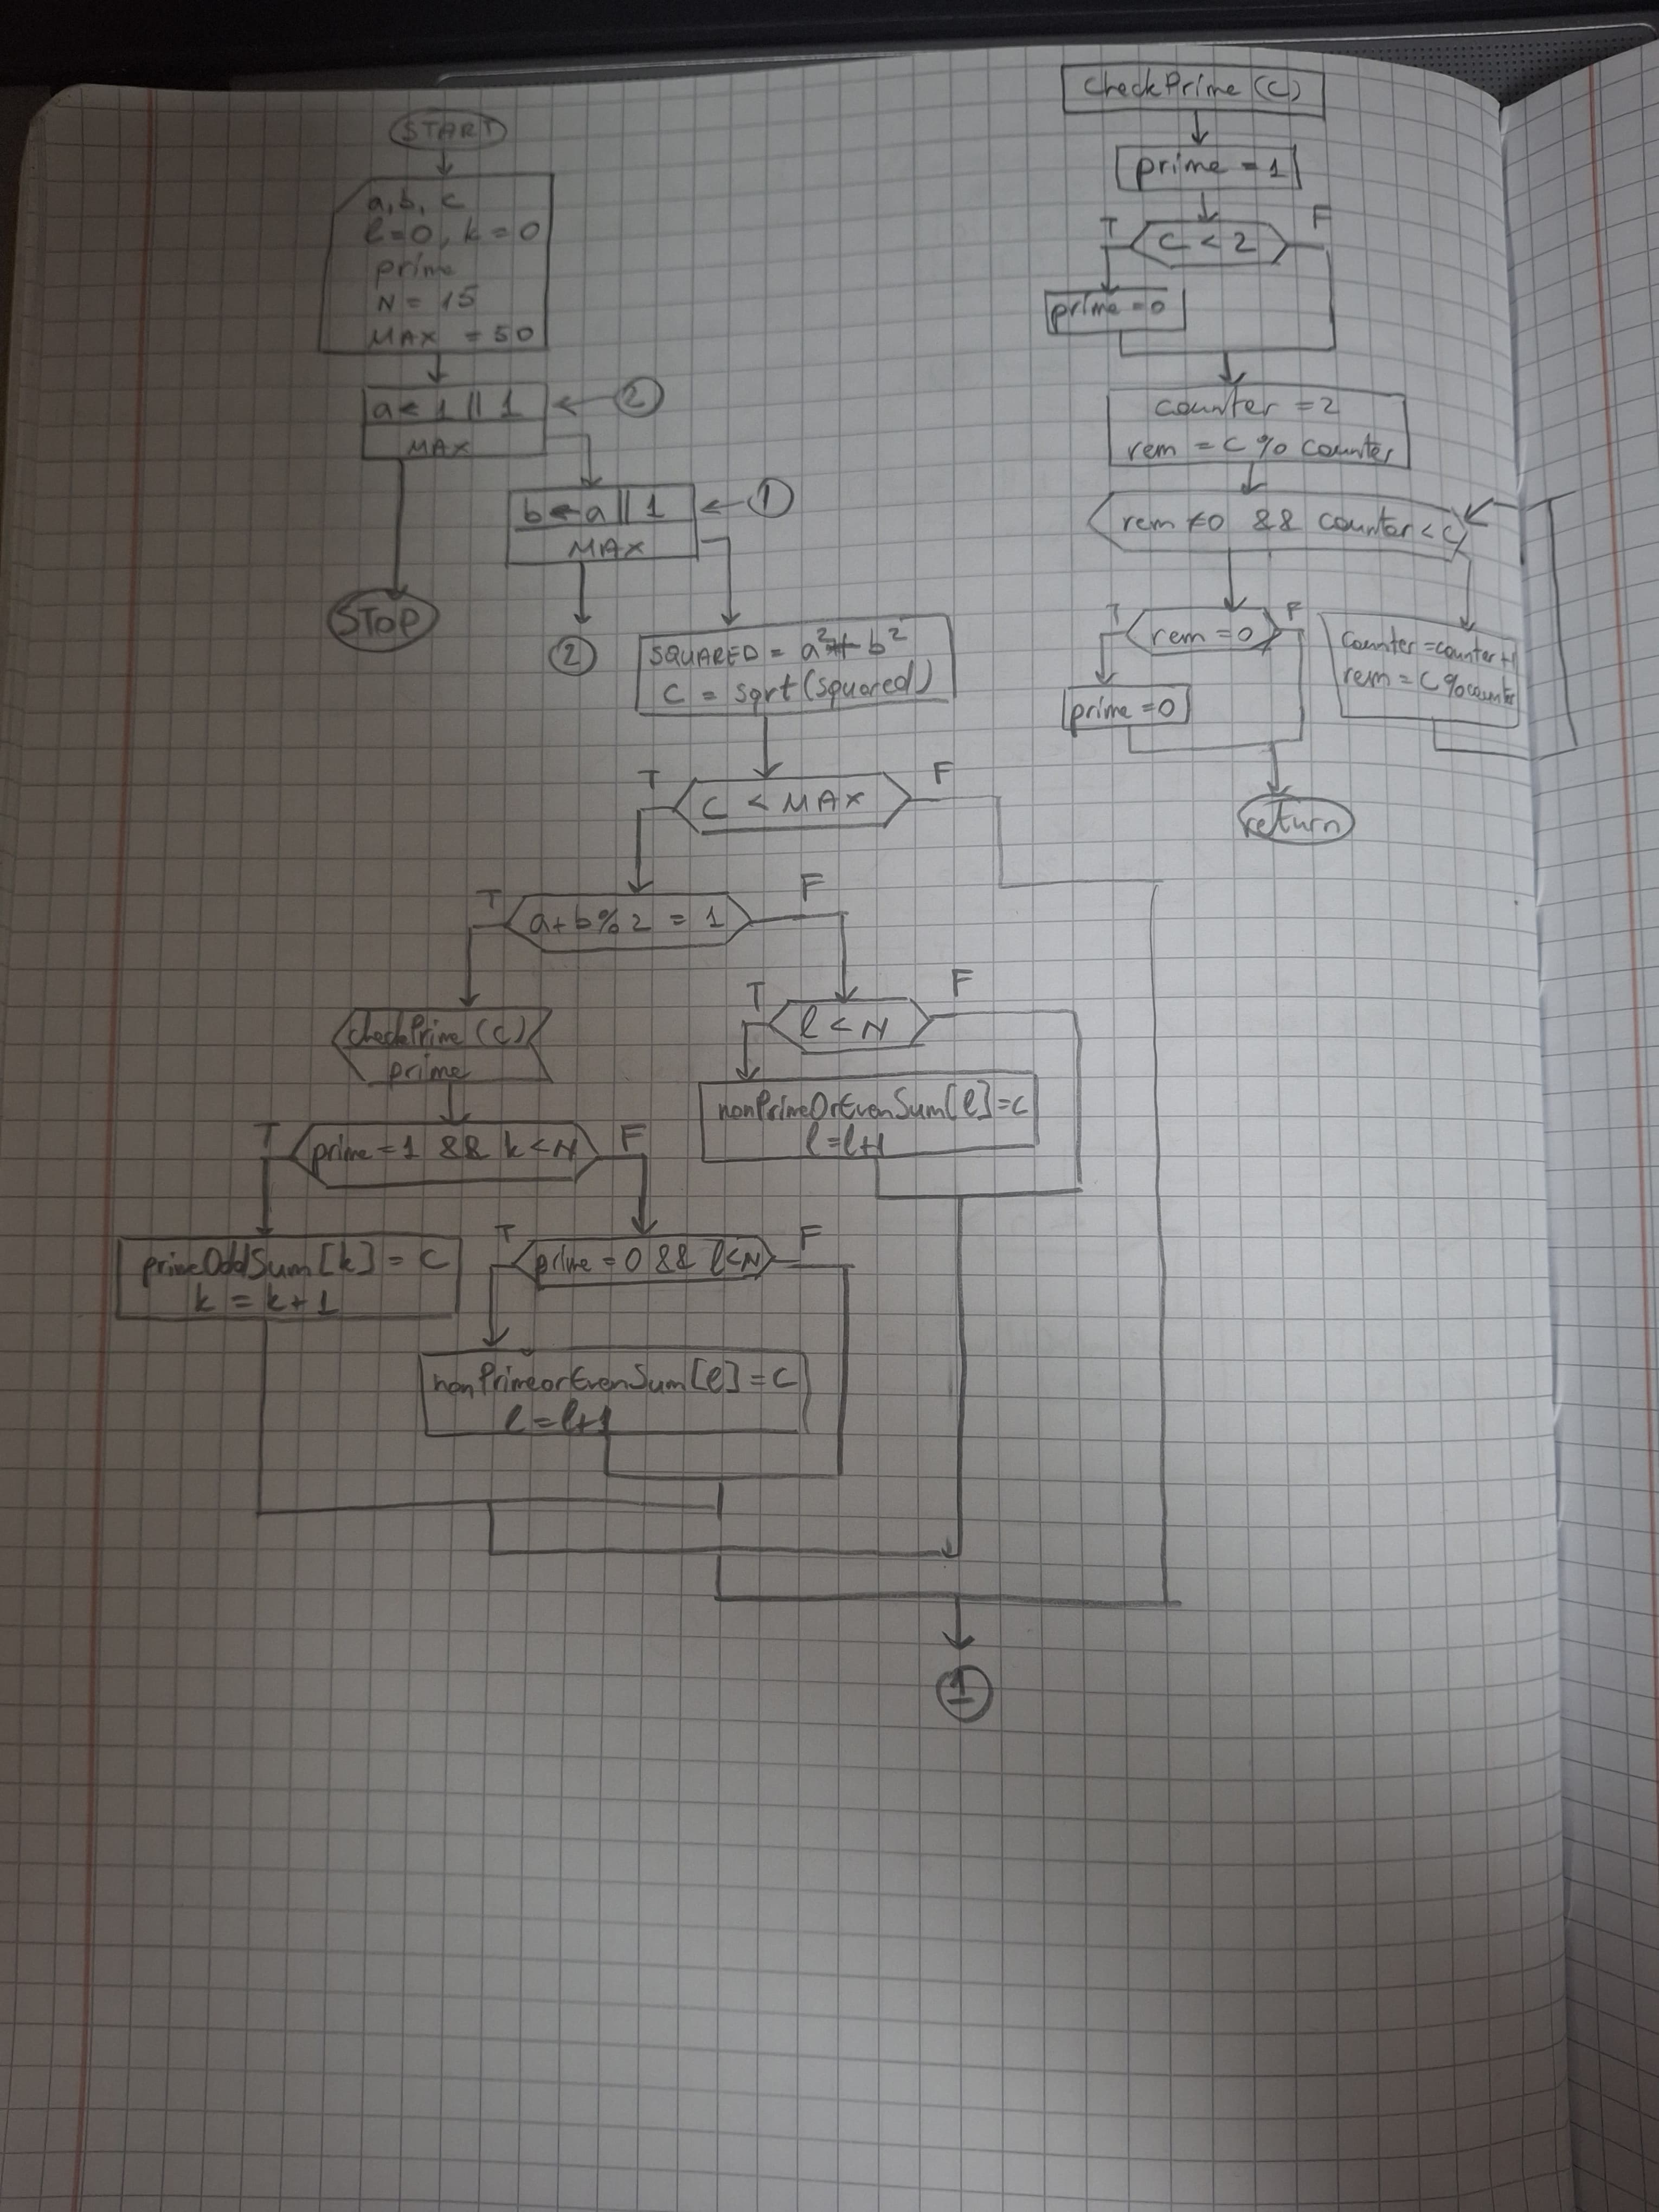 START
a, b, c
l=0, k=0
prime
N = 15
MAX = 50
a← 1 || 1
MAX
2
b←a || 1
MAX
1
STOP
2
SQUARED = a²+ b²
C = sqrt(squared)
T
C < MAX
F
T
a+b%2 = 1
F
checkPrime (c)
prime
T
l<N
F
nonPrimeOrEvenSum[l]=c
l=l+1
T
prime=1 && k<N
F
primeOddSum[k] = c
k = k+1
T
prime = 0 && l<N
F
nonPrimeorEvenSum[l]=c
l=l+1
1
checkPrime (c)
prime = 1
T
C < 2
F
prime=0
counter =2
rem = C % counter
rem ≠0 && counter<c
T
rem=0
F
prime=0
counter=counter+1
rem = C%counter
return